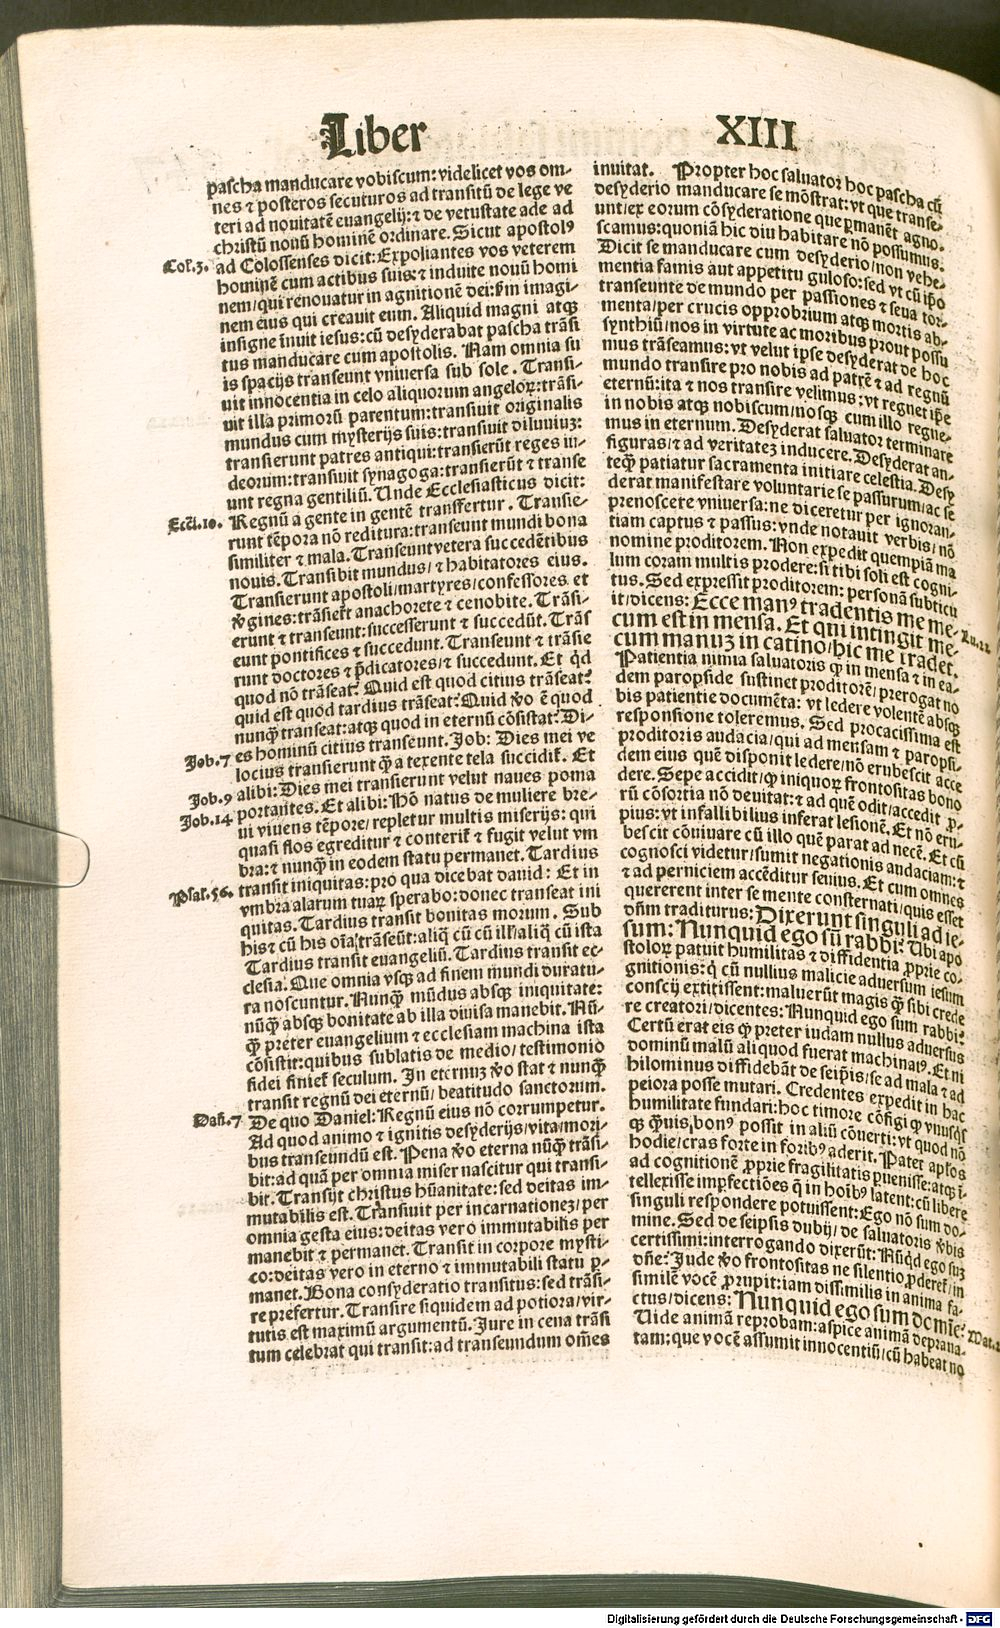 Liber XIII
pascha manducare vobiscum: videlicet vos om-
nes ⁊ posteros secuturos ad transitū de lege ve
teri ad nouitatē euangelij: ⁊ de vetustate ade ad
christū nouū hominē ordinare. Sicut apostolꝰ
Col. 3. ad Colossenses dicit: Expoliantes vos veterem
hominē cum actibus suis: ⁊ induite nouū homi
nem/ qui renouatur in agnitionē dei: fm imagi-
nem eius qui creauit eum. Aliquid magni atqꝫ
insigne īnuit iesus: cū desyderabat pascha trāsi
tus manducare cum apostolis. Nam omnia su
is spacijs transeunt vniuersa sub sole. Transi-
uit innocentia in celo aliquorum angeloꝝ: trāsi-
uit illa primorū parentum: transiuit originalis
mundus cum mysterijs suis: transiuit diluuiuꝫ:
transierunt patres antiqui: transierūt reges iu-
deorum: transiuit synagoga: transierūt ⁊ transe
unt regna gentiliū. Unde Ecclesiasticus dicit:
Eccī. 10. Regnū a gente in gentē transfertur. Transie-
runt tēpora nō reditura: transeunt mundi bona
similiter ⁊ mala. Transeunt vetera succedētibus
nouis. Transibit mundus/ ⁊ habitatores eius.
Transierunt apostoli/ martyres/ confessores et
v̄gines: trāsierūt anachorete ⁊ cenobite. Trāsi-
erunt ⁊ transeunt: successerunt ⁊ succedūt. Trās
eunt pontifices ⁊ succedunt. Transeunt ⁊ trāsie
runt doctores ⁊ p̄dicatores/ ⁊ succedunt. Et qd̄
quod nō trāseat? Quid est quod citius trāseat?
quid est quod tardius trāseat? Quid v̄o ē quod
nunqꝫ transeat: atqꝫ quod in eternū cōsistat? Di-
Job. 7 es hominū citius transeunt. Job: Dies mei ve
locius transierunt qꝫ a texente tela succidiť. Et
Job. 9 alibi: Dies mei transierunt velut naues poma
Job. 14 portantes. Et alibi: Hō natus de muliere bre-
ui viuens tēpore/ repletur multis miserijs: qui
quasi flos egreditur ⁊ conteriť ⁊ fugit velut vm
bra: ⁊ nunqꝫ in eodem statu permanet. Tardius
Psal. 56. transit iniquitas: pro qua dicebat dauid: Et in
vmbra alarum tuaꝝ sperabo: donec transeat ini
quitas. Tardius transit bonitas morum. Sub
his ⁊ cū his oīa trāseūt: aliq̄ cū cū ill aliq̄ cū ista
Tardius transit euangeliū. Tardius transit ec-
clesia. Que omnia vsqꝫ ad finem mundi duratu-
ra noscuntur. Nunqꝫ mūdus absqꝫ iniquitate:
nūqꝫ absqꝫ bonitate ab illa diuisa manebit. Nū-
qꝫ preter euangelium ⁊ ecclesiam machina ista
cōsistit: quibus sublatis de medio/ testimonio
fidei finieť seculum. In eternuꝫ v̄o stat ⁊ nunqꝫ
transit regnū dei eternū/ beatitudo sanctorum.
Dañ. 7 De quo Daniel: Regnū eius nō corrumpetur.
Ad quod animo ⁊ ignitis desyderijs/ vita/ mori-
bus transeundū est. Pena v̄o eterna nūqꝫ trāsi-
bit: ad quā per omnia miser nascitur qui transi-
bit. Transijt christus hūanitate: sed deitas im-
mutabilis est. Transiuit per incarnationeꝫ/ per
omnia gesta eius: deitas vero immutabilis per
manebit ⁊ permanet. Transit in corpore mysti-
co: deitas vero in eterno ⁊ immutabili statu ꝑ-
manet. Bona consyderatio transitus: sed trāsi-
re prefertur. Transire siquidem ad potiora/ vir-
tutis est maximū argumentū. Jure in cena trāsi
tum celebrat qui transit: ad transeundum om̄es
inuitat. Propter hoc saluator hoc pascha cū
desyderio manducare se mōstrat: vt que transe-
unt/ ex eorum cōsyderatione que ꝑmanēt agno-
scamus: quoniā hic diu habitare nō possumus.
Dicit se manducare cum desyderio/ non vehe-
mentia famis aut appetitu guloso: sed vt cū ip̄o
transeunte de mundo per passiones ⁊ seua tor-
menta/ per crucis opprobrium atqꝫ mortis ab-
synthiū/ nos in virtute ac moribus prout possu
mus trāseamus: vt velut ipse desyderat de hoc
mundo transire pro nobis ad patrē ⁊ ad regnū
eternū: ita ⁊ nos transire velimus: vt regnet ip̄e
in nobis atqꝫ nobiscum/ nosqꝫ cum illo regne-
mus in eternum. Desyderat saluator terminare
figuras/ ⁊ ad veritateꝫ inducere. Desyderat an-
teqꝫ patiatur sacramenta initiare celestia. Desy
derat manifestare voluntarie se passurum/ ac se
prenoscere vniuersa: ne diceretur per ignoran-
tiam captus ⁊ passus: vnde notauit verbis/ nō
nomine proditorem. Non expedit quempiā ma
lum coram multis prodere: si tibi soli est cogni-
tus. Sed expressit proditorem: personā subticu
it/ dicens: Ecce manꝰ tradentis me me-
Lu. 22 cum est in mensa. Et qui intingit me-
cum manuꝫ in catino/ hic me tradet.
Patientia nimia saluatoris qꝫ in mensa ⁊ in ea-
dem paropside sustinet proditorē/ prerogat no
bis patientie documēta: vt ledere volentē absqꝫ
responsione toleremus. Sed procacissima est
proditoris audacia/ qui ad mensam ⁊ paropsi-
dem eius quē disponit ledere/ nō erubescit acce
dere. Sepe accidit/ qꝫ iniquoꝝ frontositas bono
rū cōsortia nō deuitat: ⁊ ad quē odit/ accedit ꝓ-
pius: vt infallibilius inferat lesionē. Et nō eru-
bescit cōuiuare cū illo quē parat ad necē. Et cū
cognosci videtur/ sumit negationis audaciam: ⁊
⁊ ad perniciem accēditur seuius. Et cum omnes
quererent inter se mente consternati/ quis esset
dn̄m traditurus: Dixerunt singuli ad ie-
sum: Nunquid ego sū rabbi? Ubi apo
stoloꝝ patuit humilitas ⁊ diffidentia ꝓprie co-
gnitionis: q̇ cū nullius malicie aduersum iesum
conscij extitissent: maluerūt magis qꝫ sibi crede
re creatori/ dicentes: Nunquid ego sum rabbi?
Certū erat eis qꝫ preter iudam nullus aduersus
dominū malū aliquod fuerat machinatꝰ. Et ni
hilominus diffidebāt de seip̄is/ se ad mala ⁊ ad
peiora posse mutari. Credentes expedit in hac
humilitate fundari: hoc timore cōfigi qꝫ vnusqs
qꝫ qꝫuis bonꝰ possit in aliū cōuerti: vt quod nō
hodie/ cras forte in foribꝰ aderit. Pater apl̄os
ad cognitionē ꝓprie fragilitatis ꝑuenisse: atqꝫ ī-
tellexisse imꝑfectiōes q̄ in hoībꝰ latent: cū libere
singuli respondere potuissent: Ego nō sum do-
mine. Sed de seipsis dubij/ de saluatoris v̄bis
certissimi: interrogando dixerūt: Nūqd ego suꝫ
dn̄e? Jude v̄o frontositas ne silentio ꝓdereť/ in
similē vocē ꝓrupit: iam dissimilis in anima fa-
ctus/ dicens: Nunquid ego sum domīe?
Uide animā reprobam: aspice animā deprana-
tam: que vocē assumit innocentiū/ cū habeat no